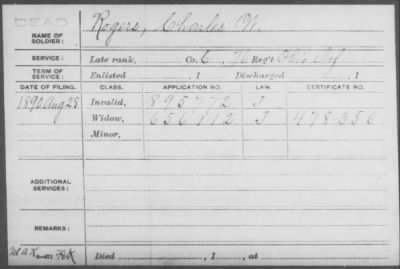 DEAD
NAME OF SOLDIER: Rogers, Charles W.
SERVICE: Late rank, Co. C, 76 Reg't Ohio Inf
TERM OF SERVICE: Enlisted , 1 Discharged , 1
DATE OF FILING. CLASS. APPLICATION NO. LAW. CERTIFICATE NO.
1890 Aug 28 Invalid, 895772 J
Widow, 656112 J 478356
Minor,
ADDITIONAL SERVICES:
REMARKS:
Died , 1 , at